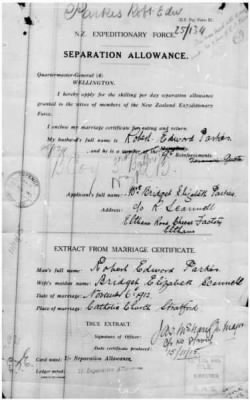 Parkes Robt Edw
25/134
N.Z. EXPEDITIONARY FORCE.
SEPARATION ALLOWANCE.
Quartermaster-General (4)
WELLINGTON.
I hereby apply for the shilling per day separation allowance
granted to the wives of members of the New Zealand Expeditionary
Force.
I enclose my marriage certificate for noting and return.
My husband's full name is Robert Edward Parkes.
and he is a
Reinforcements
Applicant's full name: Mrs Bridget Elizabeth Parkes,
Address: c/o K Scannell
Eltham Road Cheese Factory
Eltham
EXTRACT FROM MARRIAGE CERTIFICATE.
Man's full name: Robert Edward Parkes.
Wife's maiden name: Bridget Elizabeth Scannell
Date of marriage: November 6 1912
Place of marriage: Catholic Church Stratford
TRUE EXTRACT.
Signature of Officer:
Major
Date certificate produced: 15/11/15
Card noted: Separation Allowance.
Ledger noted: Separation Allowance